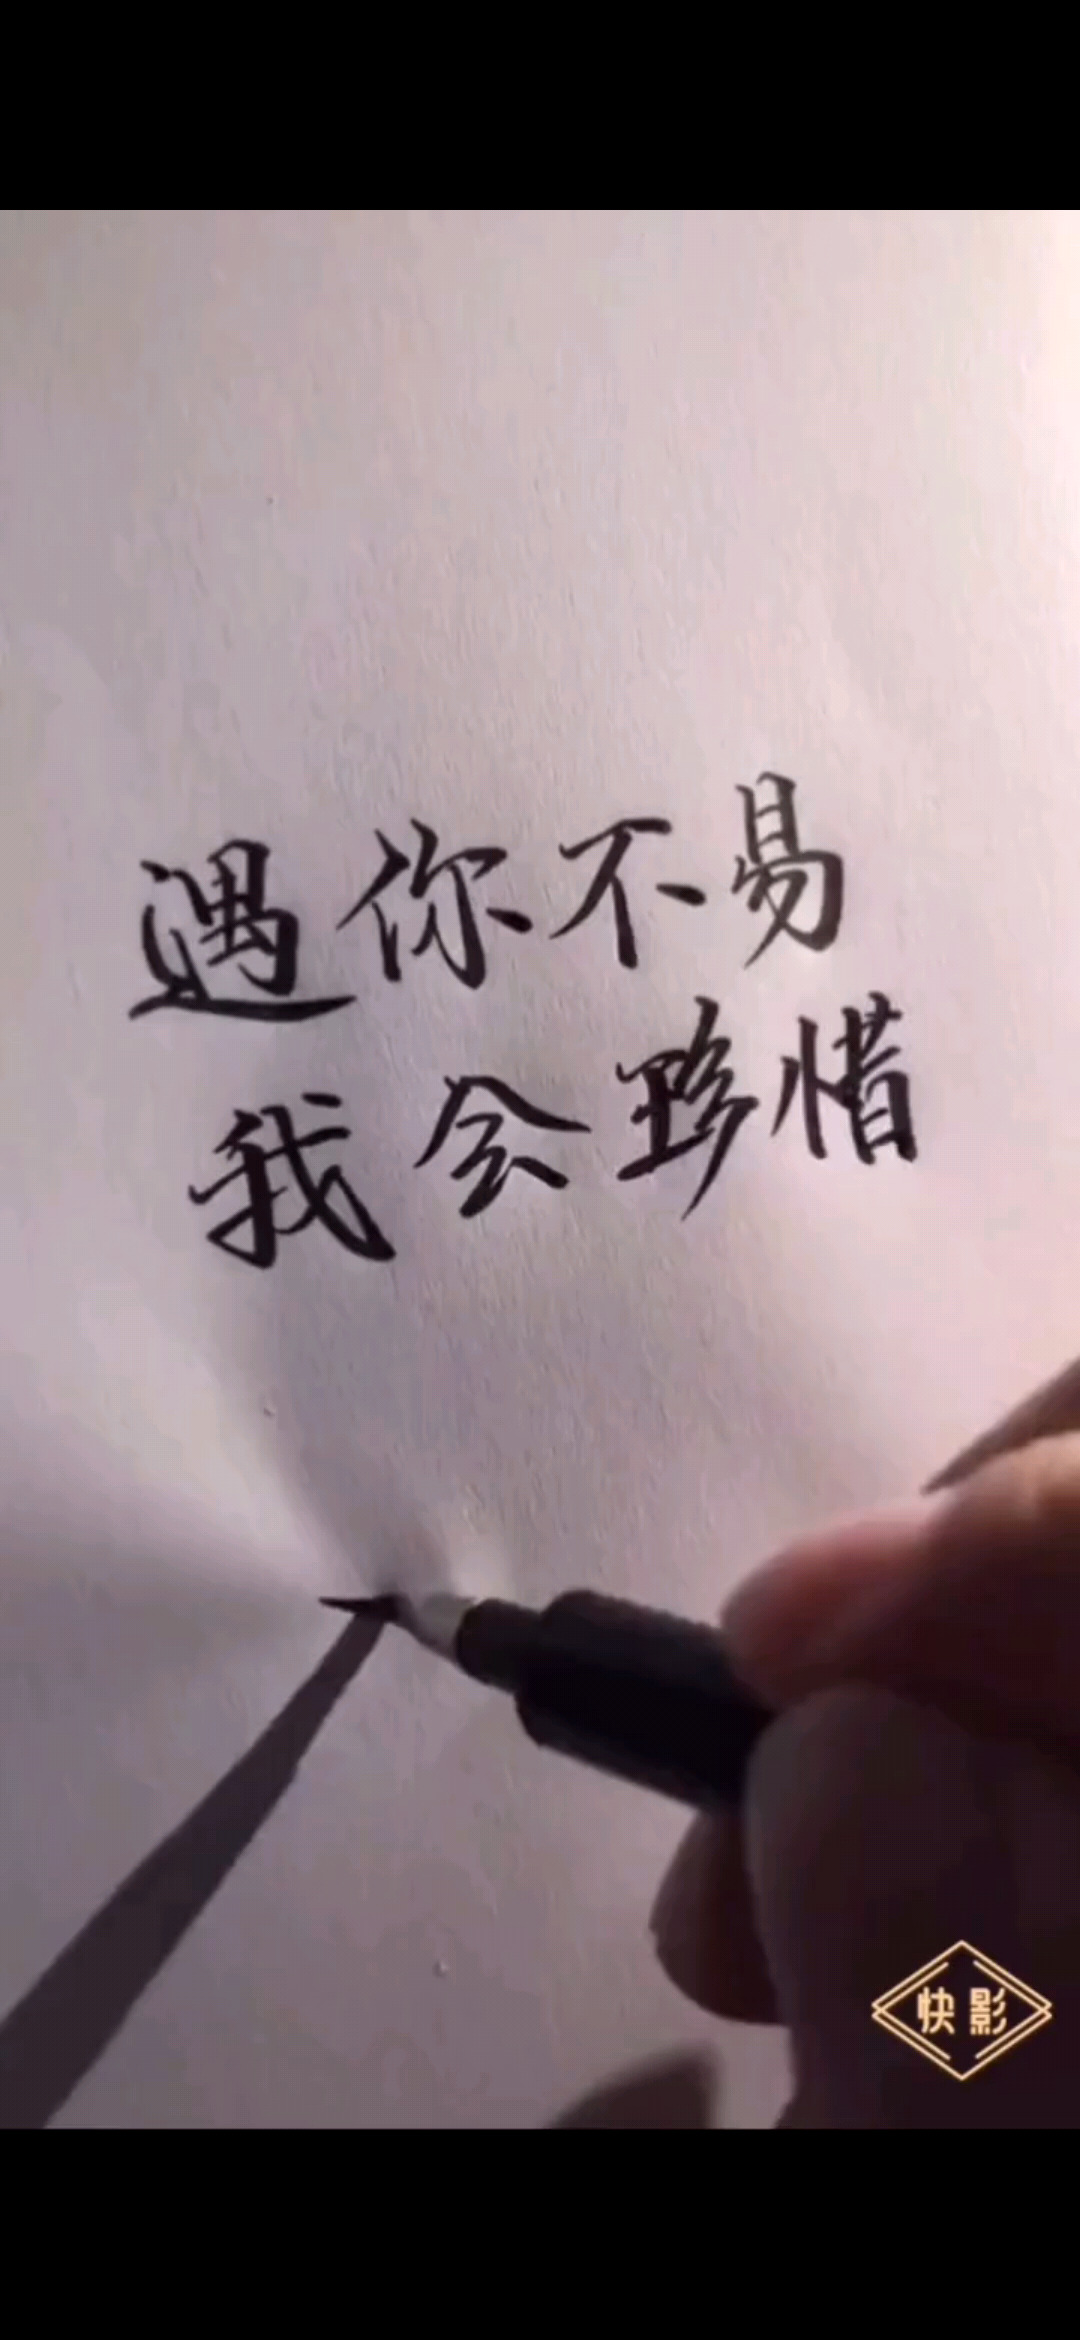 遇你不易
我会珍惜
快影